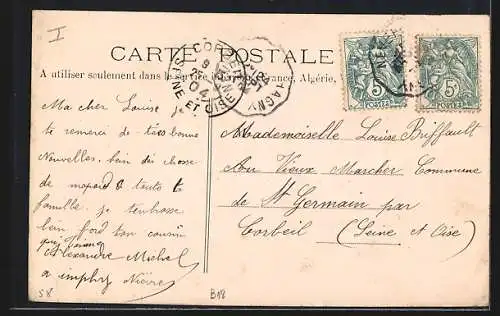 I
CARTE POSTALE
A utiliser seulement dans le service France, Algérie,
CORBEIL
SEINE ET OISE
5c POSTES
5c POSTES
Ma cher Louise je
te remerci de tes bonne
Nouvelles. bien du chosse
de ma part à toute ta
famille. je tenbrasse
bien ford ton cousin
qui t'aime
Alexandre Michel
a imphy Nièvre
Mademoiselle Louise Briffault
Au Vieux Marcher Commune
de St Germain par
Corbeil (Seine et Oise)
58
B18